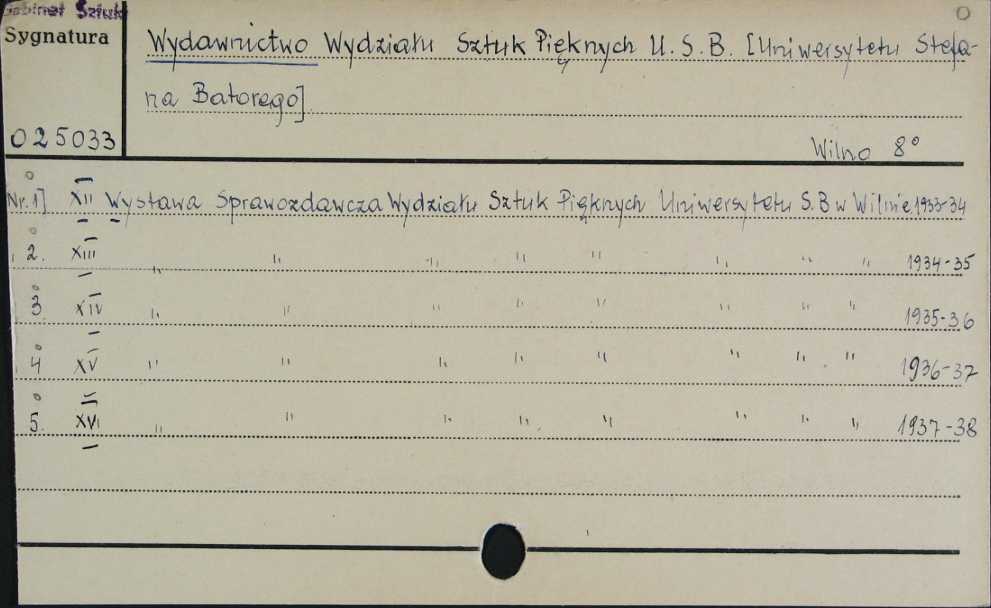 Gabinet Sztuki
Sygnatura
Wydawnictwo Wydziału Sztuk Pięknych U. S. B. [Uniwersytetu Stefa-
na Batorego]
025033
Wilno 8°
Nr. 1] XII Wystawa Sprawozdawcza Wydziału Sztuk Pięknych Uniwersytetu S. B w Wilnie 1933-34
2. XIII " " " " " " " " 1934-35
3 XIV " " " " " " " " 1935-36
4 XV " " " " " " " " 1936-37
5. XVI " " " " " " " " 1937-38